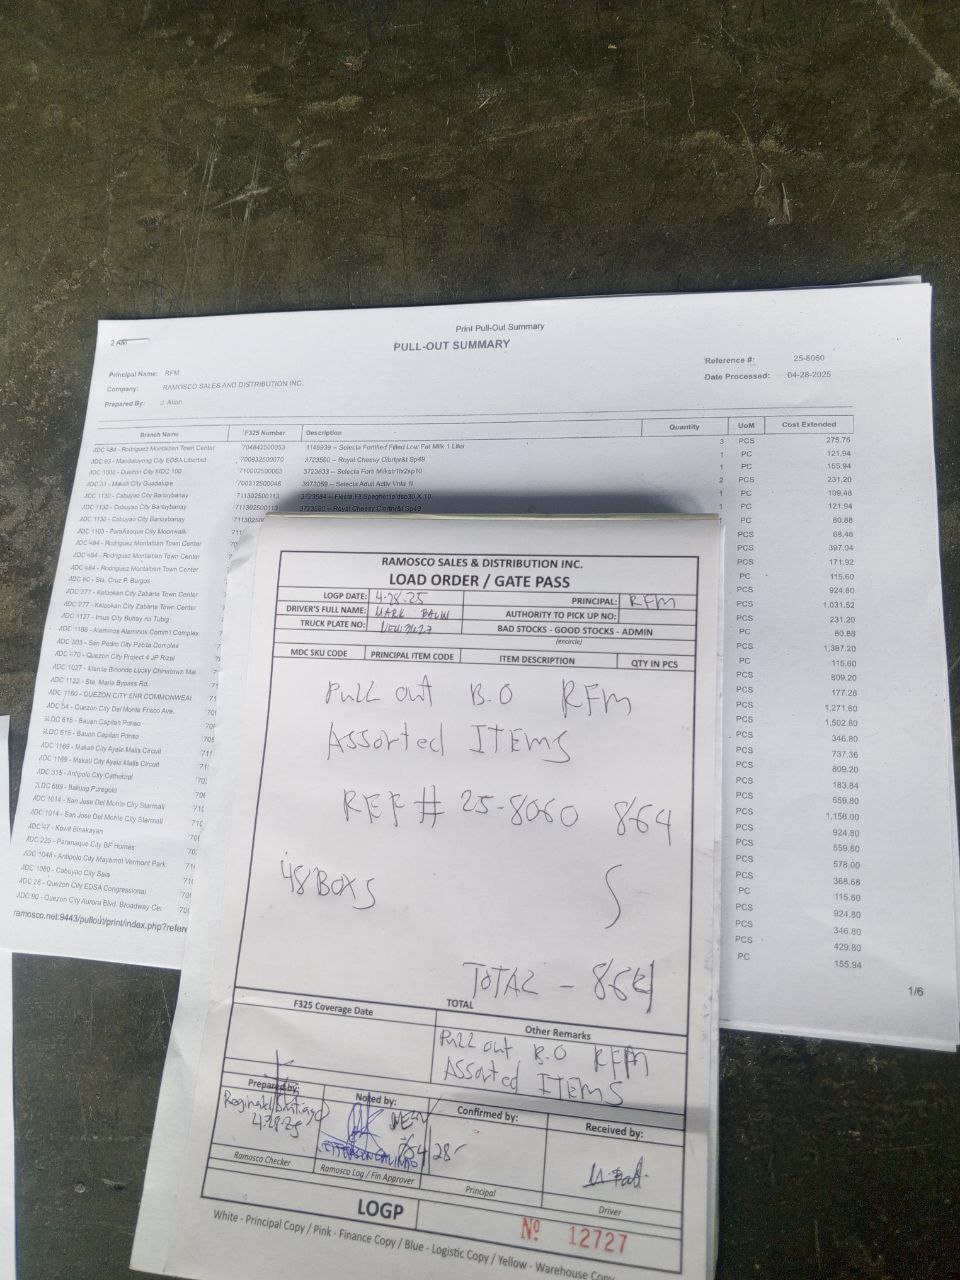 Print Pull-Out Summary
2 AM
PULL-OUT SUMMARY
Principal Name: RFM
Reference #: 25-8060
Company: RAMOSCO SALES AND DISTRIBUTION INC.
Date Processed: 04-28-2025
Prepared By: J. Allan
Branch Name F325 Number Description Quantity UoM Cost Extended
JDC 484 - Rodriguez Montalban Town Center 704842500053 1148939 -- Selecta Fortified Filled Low Fat Milk 1 Liter 3 PCS 275.76
JDC 93 - Mandaluyong City EDSA Libertad 700932500070 3723560 -- Royal Cheesy Sp49 1 PC 121.94
Quezon City MDC 100 710002500065 3723633 -- Selecta 1 PC 155.94
JDC 31 - Makati City Guadalupe 700312500046 3973059 -- Selecta Adult 2 PCS 231.20
JDC 1130 - Cabuyao City Banaybanay 711302500113 3723584 -- Fiesta 1 PC 109.48
JDC 1130 - Cabuyao City Banaybanay 3723560 -- Royal Cheesy Sp49 1 PC 121.94
JDC 1130 - Cabuyao City Banaybanay PC 80.88
JDC 1103 - ParaÃ±aque City Moonwalk PCS 68.46
JDC 484 - Rodriguez Montalban Town Center PCS 397.04
JDC 484 - Rodriguez Montalban Town Center PCS 171.92
JDC 484 - Rodriguez Montalban Town Center PC 115.60
JDC 60 - Sta. Cruz P. Burgos PCS 924.80
JDC 277 - Kalookan City Zabarte Town Center PCS 1,031.52
JDC 277 - Kalookan City Zabarte Town Center PCS 231.20
JDC 1127 - Imus City Buhay na Tubig PC 80.88
Alaminos PCS 1,387.20
JDC 303 - San Pedro City Pacita Complex PC 115.60
JDC 470 - Quezon City Project 4 JP Rizal PCS 809.20
JDC 1027 - Manila Binondo Lucky Chinatown Mal PCS 177.28
JDC 1122 - Sta. Maria Bypass Rd. PCS 1,271.60
JDC 1160 - QUEZON CITY ENR COMMONWEAL PCS 1,502.80
JDC 54 - Quezon City Del Monte Frisco Ave. PCS 346.80
615 - Bauan Capitan Ponso PCS 737.36
615 - Bauan Capitan Ponso PCS 809.20
JDC 1169 - Makati City Ayala Malls Circuit PCS 183.84
JDC 1169 - Makati City Ayala Malls Circuit PCS 559.80
JDC 315 - Antipolo City Cathedral PCS 1,156.00
693 - Baliuag Poregold PCS 924.80
JDC 1014 - San Jose Del Monte City Starmall PCS 559.80
JDC 1014 - San Jose Del Monte City Starmall PCS 578.00
JDC 47 - Kawit Binakayan PCS 368.68
JDC 225 - Paranaque City BF Homes PC 115.60
JDC 1048 - Antipolo City Mayamot Vermont Park PCS 924.80
JDC 1080 - Cabuyao City Sala PCS 346.80
JDC 26 - Quezon City EDSA Congressional PCS 429.80
JDC 90 - Quezon City Aurora Blvd. Broadway Cen PC 155.94
ramosco.net:9443/pullout/print/index.php?refere
1/6
RAMOSCO SALES & DISTRIBUTION INC.
LOAD ORDER / GATE PASS
LOGP DATE: 4-28-25 PRINCIPAL: RFM
DRIVER'S FULL NAME: MARK AUTHORITY TO PICK UP NO:
TRUCK PLATE NO: BAD STOCKS - GOOD STOCKS - ADMIN
(encircle)
MDC SKU CODE PRINCIPAL ITEM CODE ITEM DESCRIPTION QTY IN PCS
Pull out B.O RFM
Assorted ITEMS
REF # 25-8060 864
48 BOXS
TOTAL - 864
TOTAL
F325 Coverage Date Other Remarks
Pull out B.O RFM
Assorted ITEMS
Prepared by: Noted by: Confirmed by: Received by:
4-28-25
Ramosco Checker Ramosco Log / Fin Approver Principal Driver
LOGP Nº 12727
White - Principal Copy / Pink - Finance Copy / Blue - Logistic Copy / Yellow - Warehouse Copy